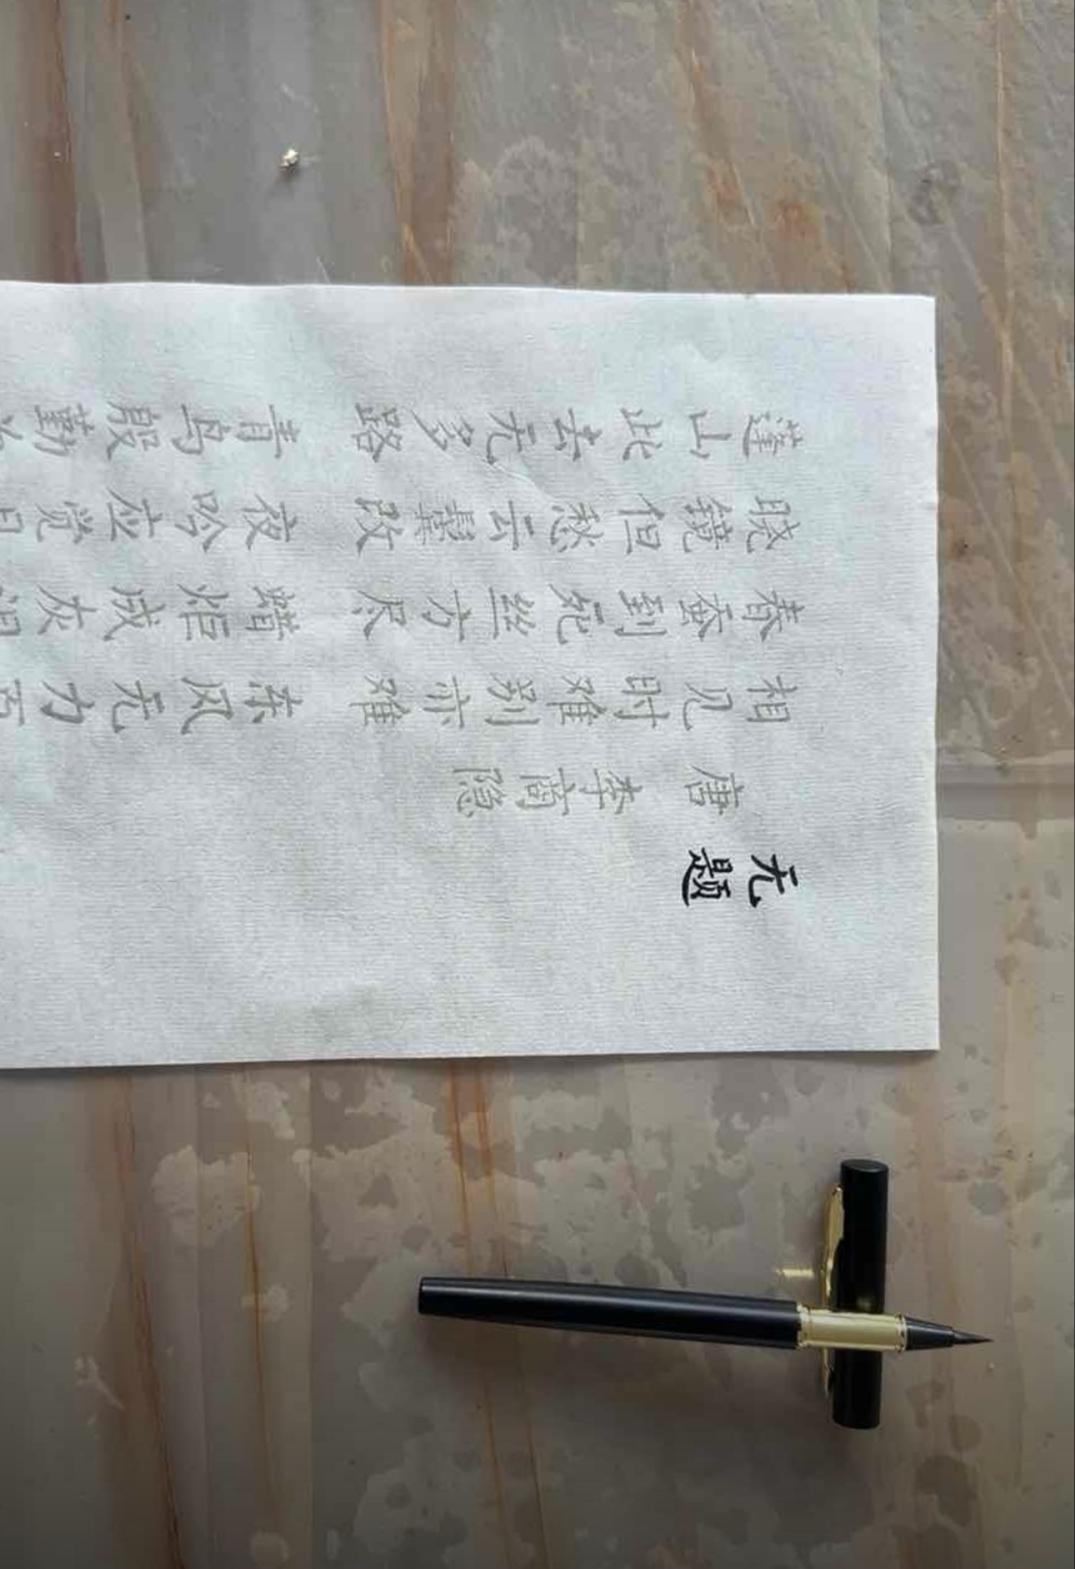 无题
唐 李商隐
相见时难别亦难 东风无力百
春蚕到死丝方尽 蜡炬成灰泪
晓镜但愁云鬓改 夜吟应觉月
蓬山此去无多路 青鸟殷勤为